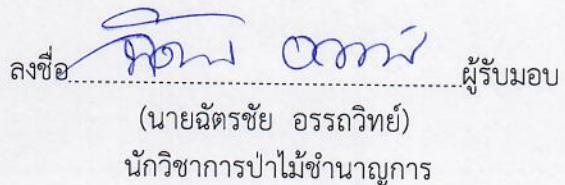 ลงชื่อ........................................ผู้รับมอบ
(นายฉัตรชัย อรรถวิทย์)
นักวิชาการป่าไม้ชำนาญการ